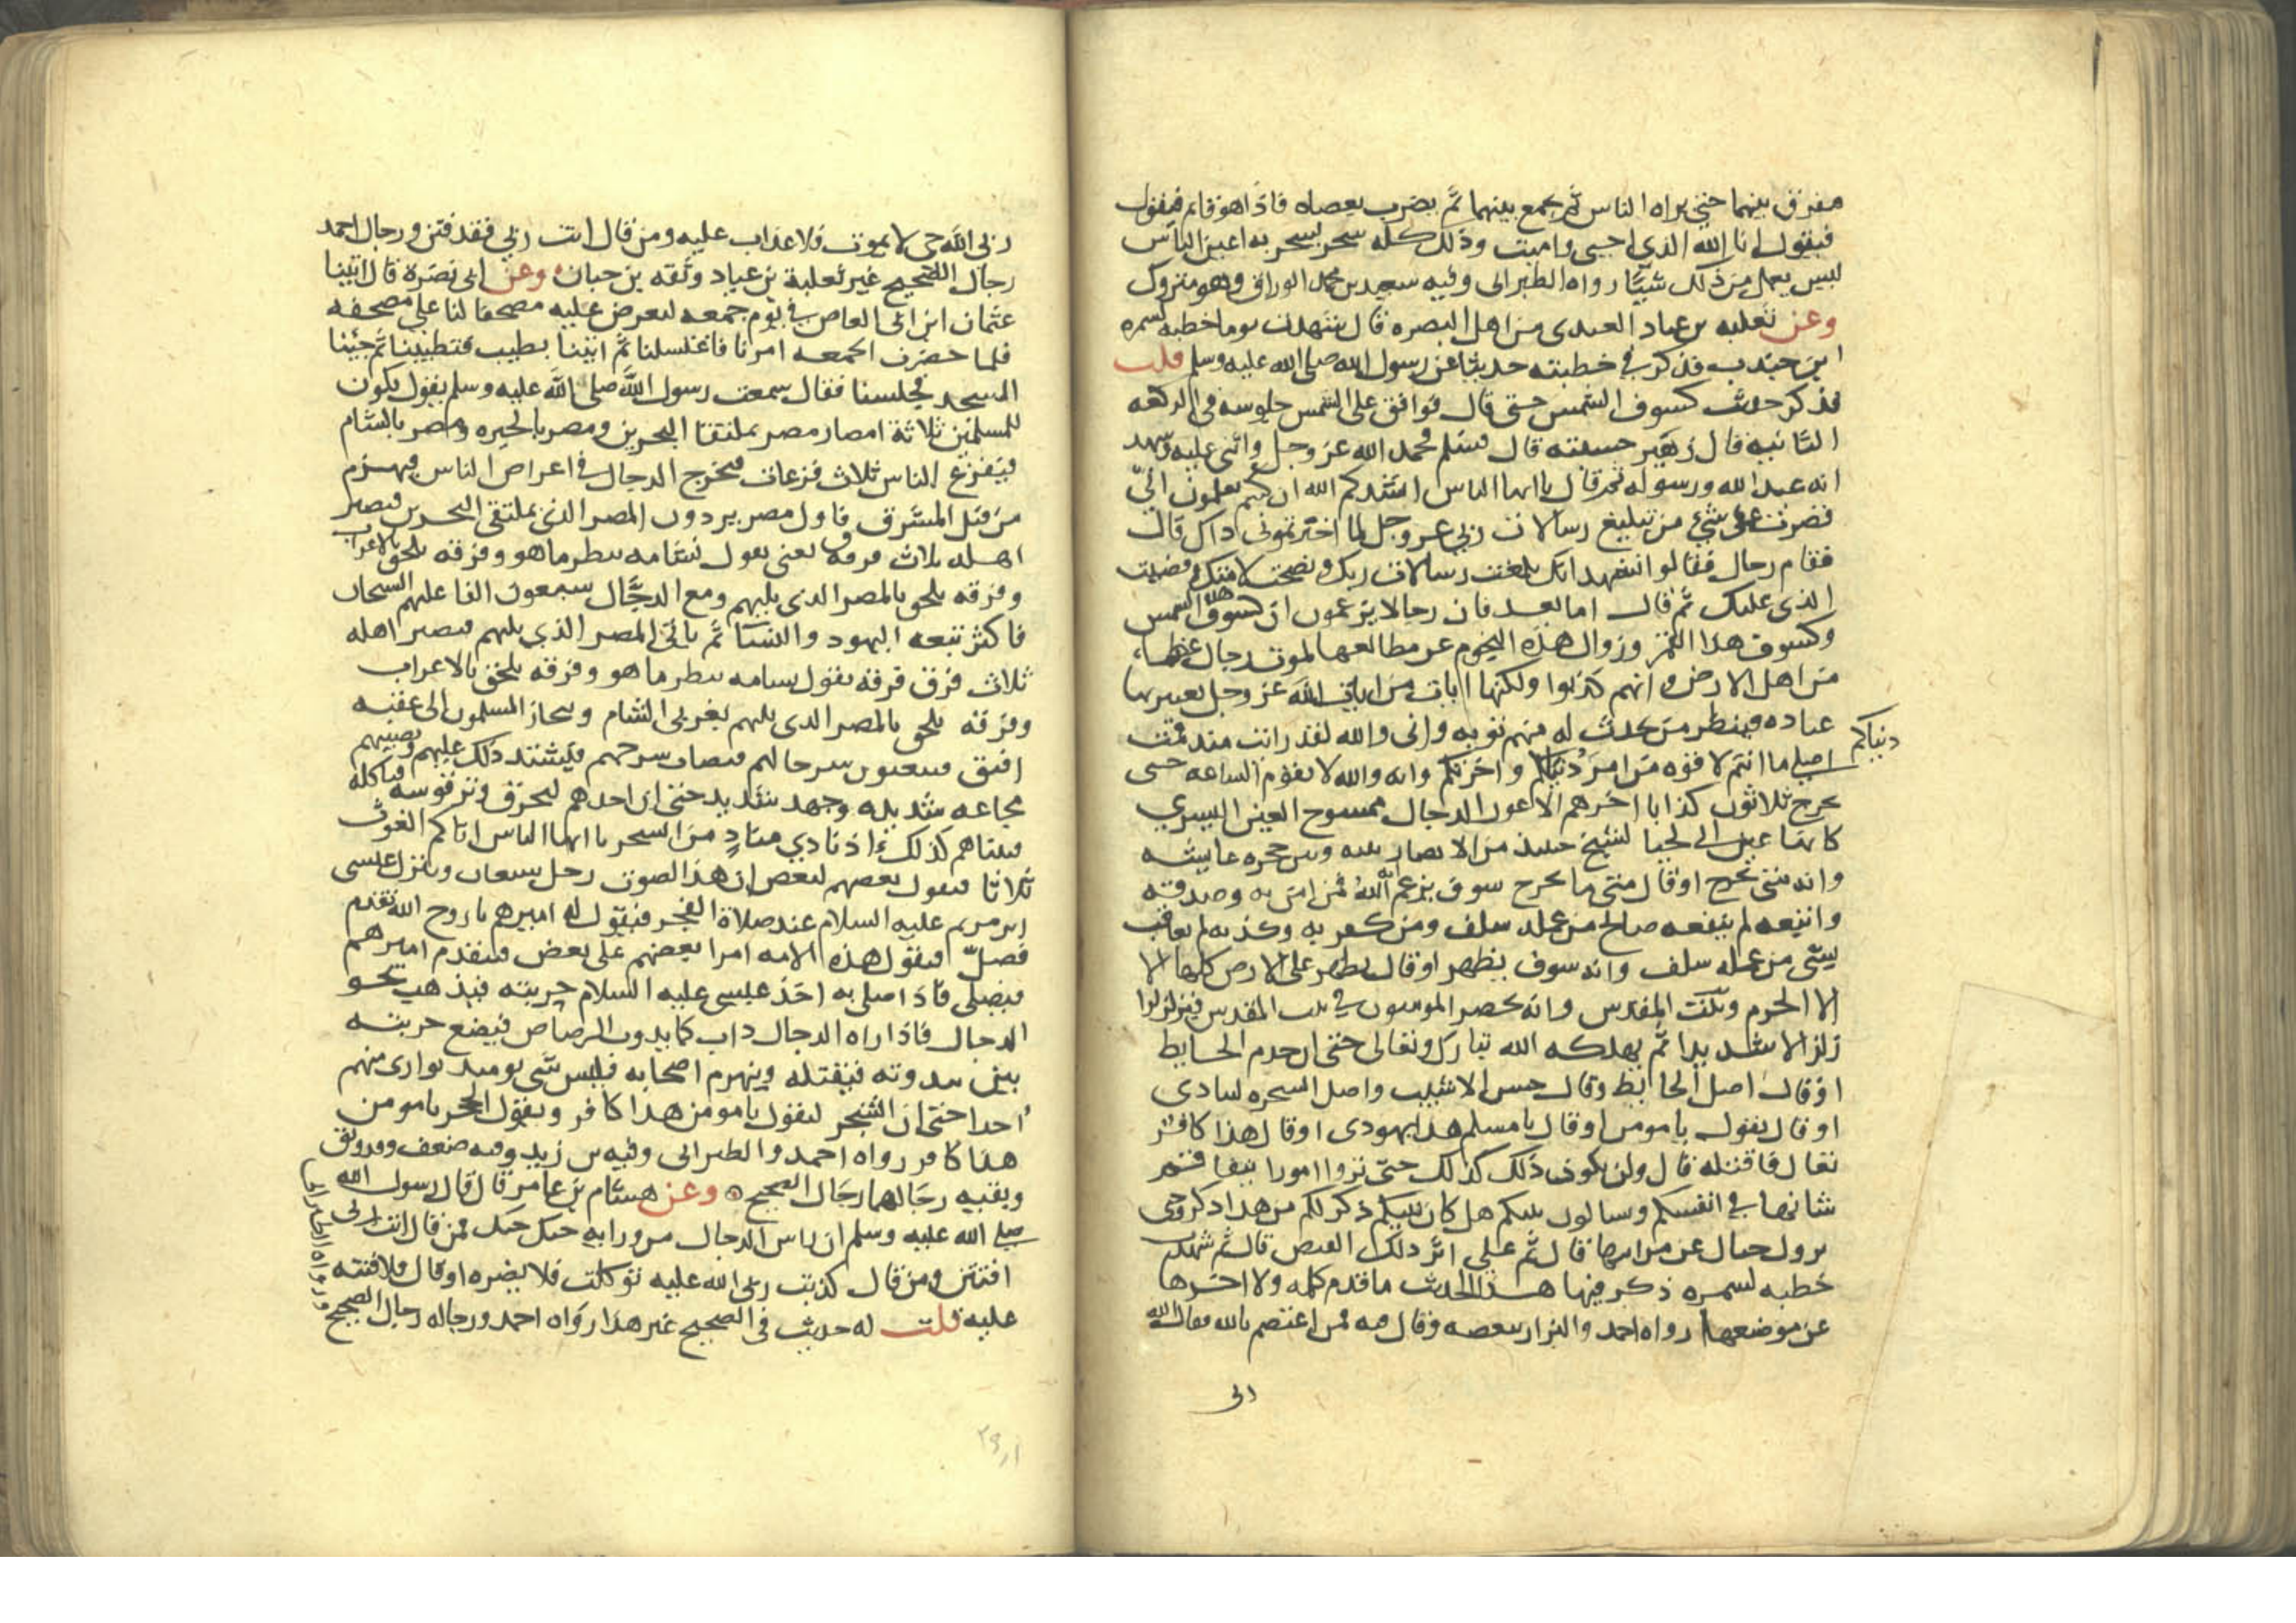 مفرق بينهما حتى يراه الناس ثم يجمع بينهما ثم يضرب بعصاه فاذا هو قايم فيقول
فيقول انا الله الذي احيي واميت وذلك كله سحر يسحر به اعين الناس
ليس يعمل من ذلك شيئا رواه الطبراني وفيه سعيد بن محمد الوراق وهو متروك
وعن ثعلبه بن عباد العبدي من اهل البصره قال شهدت يوما خطبه لسمره
ابن جندب فذكر في خطبته حديثا عن رسول الله صلى الله عليه وسلم قلت
فذكر حديث كسوف الشمس حتى قال فوافق تجلى الشمس جلوسه في الركعه
الثانيه قال زهير حسبته قال فسلم فحمد الله عز وجل واثنى عليه وشهد
انه عبد الله ورسوله ثم قال يا ايها الناس انشدكم الله ان كنتم تعلمون اني
قصرت عن شي من تبليغ رسالات ربي عز وجل لما اخبرتموني ذاك قال
فقام رجال فقالوا نشهد انك بلغت رسالات ربك ونصحت لامتك وقضيت
الذي عليك ثم قال اما بعد فان رجالا يزعمون ان كسوف هذه الشمس
وكسوف هذا القمر وزوال هذه النجوم عن مطالعها لموت رجال عظماء
من اهل الارض وانهم كذبوا ولكنها ايات من ايات الله عز وجل يعتبر بها
عباده فينظر من يحدث له منهم توبه واني والله لقد رايت منذ قمت
اصلي ما انتم لاقوه من امر دنياكم واخرتكم وانه والله لا تقوم الساعه حتى
دنياكم
يخرج ثلاثون كذابا اخرهم الاعور الدجال ممسوح العين اليسري
كانها عين ابي تحيا لشيخ حينئذ من الانصار بينه وبين حجره عايشه
وانه متى يخرج او قال متى ما يخرج سوف يزعم انه الله فمن امن به وصدقه
واتبعه لم ينفعه صالح من عمله سلف ومن كفر به وكذبه لم يعاقب
بشي من عمله سلف وانه سوف يظهر او قال يظهر على الارض كلها الا
الا الحرم وبيت المقدس وانه يحصر المومنون في بيت المقدس فيزلزلوا
زلزالا شديدا ثم يهلكه الله تبارك وتعالى حتى ان جدم الحايط
او قال اصل الحايط وقال حسن الاشيب واصل الشجره لينادي
او قال يقول يا مومن او قال يا مسلم هذا يهودي او قال هذا كافر
تعال فاقتله قال ولن يكون ذلك كذلك حتى تروا امورا يتفاقم
شانها في انفسكم وتسالون بينكم هل كان نبيكم ذكر لكم من هذا ذكرا وحتى
تزول جبال عن مراتبها قال ثم على اثر ذلك القبض قال ثم شهدت
خطبه لسمره ذكر فيها هذا الحديث ما قدم كلمه ولا اخرها
عن موضعها رواه احمد والبزار ببعضه وقال فيه فمن اعتصم بالله فقال الله
ربي الله حي لا يموت فلا عذاب عليه ومن قال انت ربي فقد فتن ورجال احمد
رجال الصحيح غير ثعلبة بن عباد وثقه بن حبان وعن ابي نضرة قال اتينا
عثمان ابن ابي العاص في يوم جمعه لنعرض عليه مصحفا لنا على مصحفه
فلما حضرت الجمعه امرنا فاغتسلنا ثم اتينا بطيب فتطيبنا ثم جئنا
المسجد فجلسنا فقال سمعت رسول الله صلى الله عليه وسلم يقول يكون
للمسلمين ثلاثة امصار مصر بملتقا البحرين ومصر بالحيره ومصر بالشام
فيفزع الناس ثلاث فزعات فيخرج الدجال في اعراض الناس فيهزم
من قبل المشرق فاول مصر يردون المصر الذي بملتقى البحرين فيصير
اهله ثلاث فرق فرقه يعني تقول نشامه ننظر ما هو وفرقه تلحق بالاعراب
وفرقه تلحق بالمصر الذي يليهم ومع الدجال سبعون الفا عليهم السيجان
فاكثر تبعه اليهود والنسا ثم ياتي المصر الذي يليهم فيصير اهله
ثلاث فرق فرقه تقول نشامه ننظر ما هو وفرقه تلحق بالاعراب
وفرقه تلحق بالمصر الذي يليهم بغربي الشام وينحاز المسلمون الى عقبه
افيق فيبعثون سرحا لهم فيصاب سرحهم فيشتد ذلك عليهم وتصيبهم
مجاعه شديده وجهد شديد حتى ان احدهم ليحرق وتر قوسه فياكله
فبينما هم كذلك اذ نادي مناد من السحر يا ايها الناس اتاكم الغوث
ثلاثا فيقول بعضهم لبعض ان هذا الصوت رجل شبعان وينزل عيسى
ابن مريم عليه السلام عند صلاة الفجر فيقول له اميرهم يا روح الله تقدم
فصل فيقول هذه الامه امرا بعضهم على بعض فيتقدم اميرهم
فيصلي فاذا صلى به اخذ عيسى عليه السلام حربته فيذهب نحو
الدجال فاذا راه الدجال ذاب كما يذوب الرصاص فيضع حربته
بين ثندوته فيقتله وينهزم اصحابه فليس شي يومئذ يوارى منهم
احدا حتى ان الشجر ليقول يا مومن هذا كافر ويقول الحجر يا مومن
هذا كافر رواه احمد والطبراني وفيه بن زيد وفيه ضعف وقد وثق
وبقيه رجالهما رجال الصحيح وعن هشام بن عامر قال قال رسول الله
صلى الله عليه وسلم ان راس الدجال من ورايه حبك حبك فمن قال انت ربي
افتتن ومن قال كذبت ربي الله عليه توكلت فلا يضره او قال فلا فتنه
عليه قلت له حديث في الصحيح غير هذا رواه احمد ورجاله رجال الصحيح